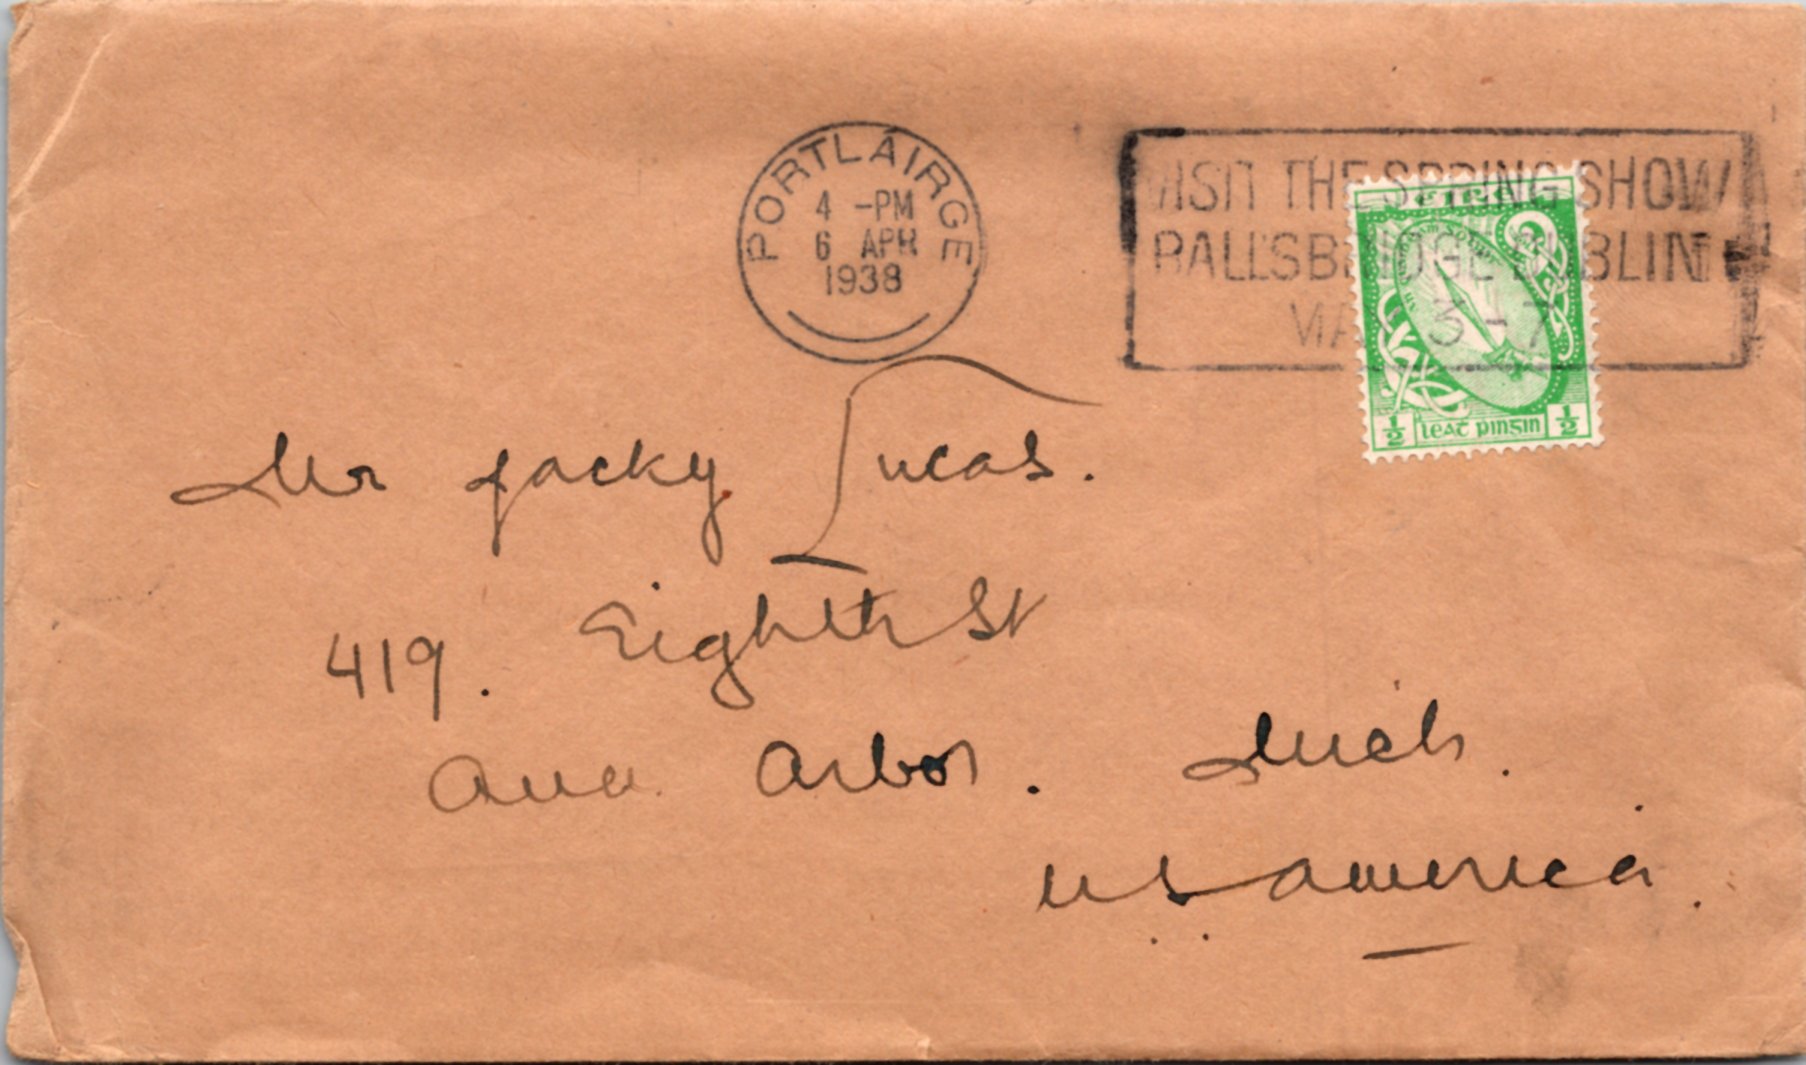 PORTLÁIRGE
4 -PM
6 APR
1938
VISIT THE SPRING SHOW
BALLSBRIDGE DUBLIN
MAY 3-7
éire
½ leat pinginn ½
Mr Jacky Lucas.
419. Eighth St
Ann Arbor. Mich.
U S America.